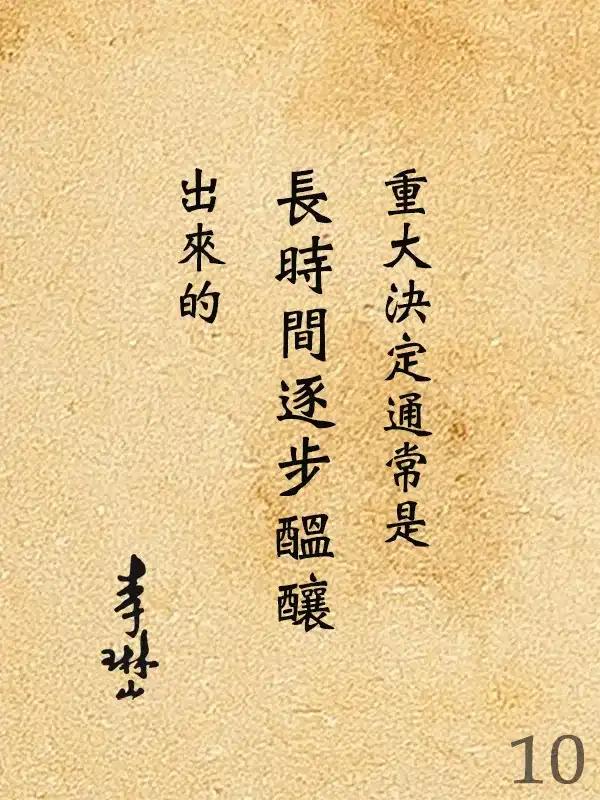 重大決定通常是
長時間逐步醞釀
出來的
李琳山
10